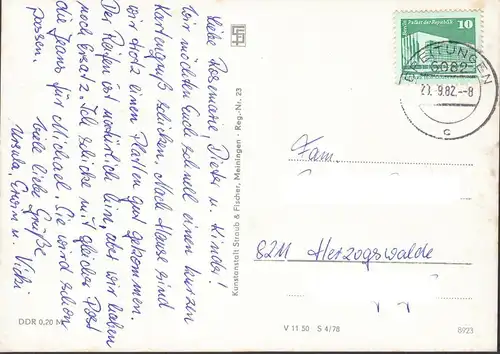 Liebe Rosemarie, Dieter u. Kinder!
Wir möchten Euch schnell einen kurzen
Kartengruß schicken. Nach Hause sind
wir trotz einen Platten gut gekommen.
Der Reifen ist natürlich hin, aber wir haben
noch Ersatz. Ich schicke mit gleicher Post
die Jeans für Michael. Sie wird schon
passen.
Viele liebe Grüße
Ursula, Erwin u. Vicki
DDR 0,20 M
Kunstanstalt Straub & Fischer, Meiningen · Reg.-Nr. 23
Berlin, Palast der Republik
10
DDR
BREITUNGEN
6082
9.82.--8
c
Fam.
8211 Herzogswalde
V 11 50 S 4/78
8923